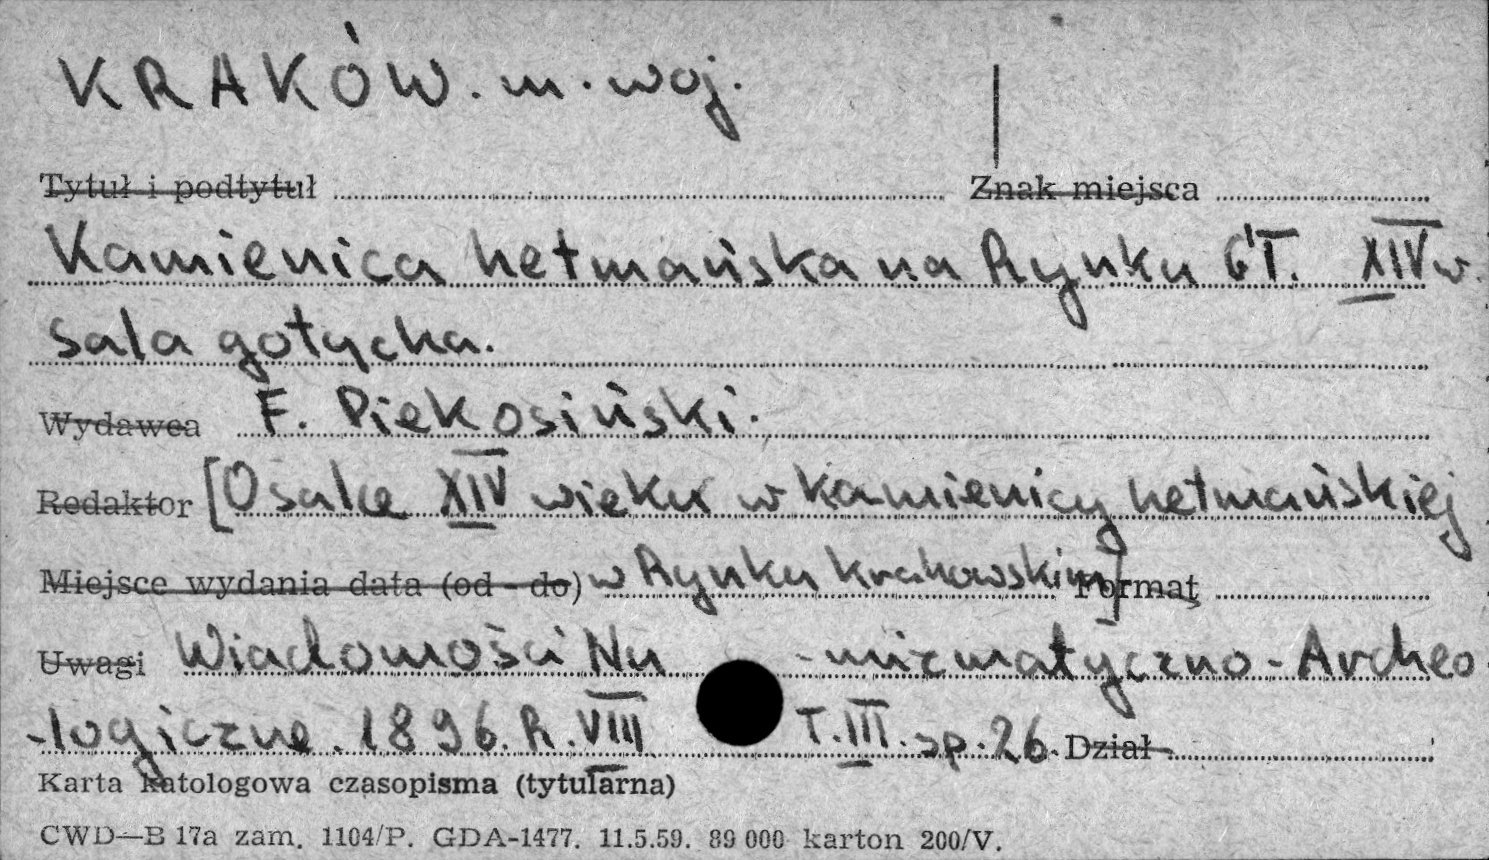 KRAKÓW. m. woj.
Tytuł i podtytuł Znak miejsca
Kamienica hetmańska na Rynku GŁ. XIV w.
sala gotycka.
Wydawca F. Piekosiński.
Redaktor [O salce XIV wieku w kamienicy hetmańskiej
Miejsce wydania data (od - do) w Rynku krakowskim] Format
Uwagi Wiadomości Nu -mizmatyczno-Archeo
-logiczne. 1896. R. VIII T. III. sp. 26. Dział
Karta katologowa czasopisma (tytularna)
CWD—B 17a zam. 1104/P. GDA-1477. 11.5.59. 89 000 karton 200/V.